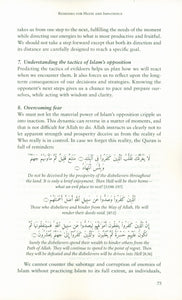 REMEDIES FOR HASTE AND IMPATIENCE
takes us from one step to the next, fulfilling the needs of the moment
while directing our energies to what is most productive and fruitful.
We should not take a step forward except that both its direction and
its distance are carefully designed to reach a specific goal.
7. Understanding the tactics of Islam's opposition
Predicting the tactics of evildoers helps us plan how we will react
when we encounter them. It also forces us to reflect upon the long-
term consequences of our decisions and strategies. Knowing the
opponent's next steps gives us a chance to pace and prepare our-
selves, while acting with wisdom and clarity.
8. Overcoming fear
We must not let the material power of Islam's opposition cripple us
into inaction. This dynamic can reverse in a matter of moments, and
that is not difficult for Allah to do. Allah instructs us clearly not to
let apparent strength and prosperity deceive us from the reality of
Who really is in control. In case we forget this reality, the Quran is
full of reminders:
لَا يَغُرَّنَّكَ تَقَلُّبُ الَّذِينَ كَفَرُوا فِي الْبِلَادِ ۝ مَتَاعٌ قَلِيلٌ ثُمَّ مَأْوَاهُمْ جَهَنَّمُ
وَبِئْسَ الْمِهَادُ ۝
Do not be deceived by the prosperity of the disbelievers throughout
the land. It is only a brief enjoyment. Then Hell will be their home—
what an evil place to rest! [3:196-197]
إِنَّ الَّذِينَ كَفَرُوا وَصَدُّوا عَن سَبِيلِ اللَّهِ أَضَلَّ أَعْمَالَهُمْ ۝
Those who disbelieve and hinder from the Way of Allah, He will
render their deeds waste. [47:1]
إِنَّ الَّذِينَ كَفَرُوا يُنفِقُونَ أَمْوَالَهُمْ لِيَصُدُّوا عَن سَبِيلِ اللَّهِ فَسَيُنفِقُونَهَا ثُمَّ تَكُونُ
عَلَيْهِمْ حَسْرَةً ثُمَّ يُغْلَبُونَ وَالَّذِينَ كَفَرُوا إِلَىٰ جَهَنَّمَ يُحْشَرُونَ ۝
Surely the disbelievers spend their wealth to hinder others from the
Path of Allah. They will continue to spend to the point of regret. Then
they will be defeated and the disbelievers will be driven into Hell [8:36].
We cannot counter the sabotage and corruption of enemies of
Islam without practicing Islam to its full extent, as individuals,
75